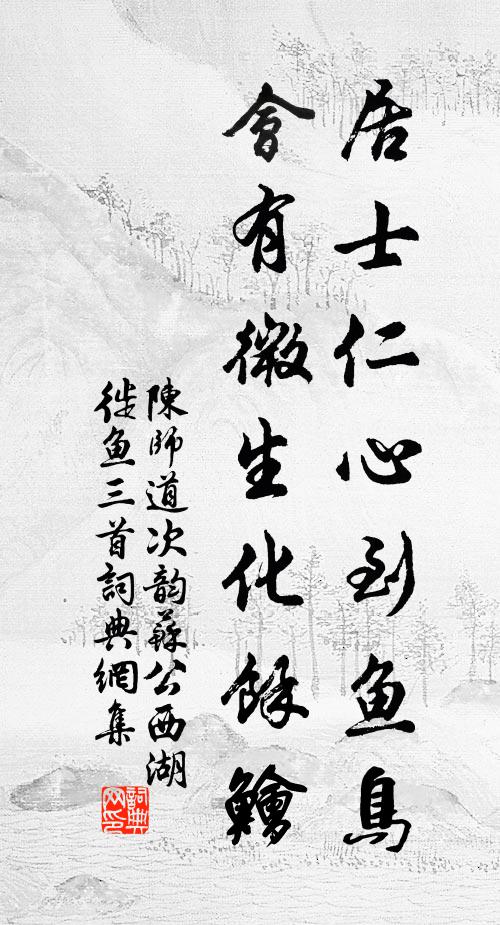 居士仁心到鱼鳥
會有微生化餘鱠
陳師道次韵蘇公西湖
徙鱼三首詞典網集
詞典
网印